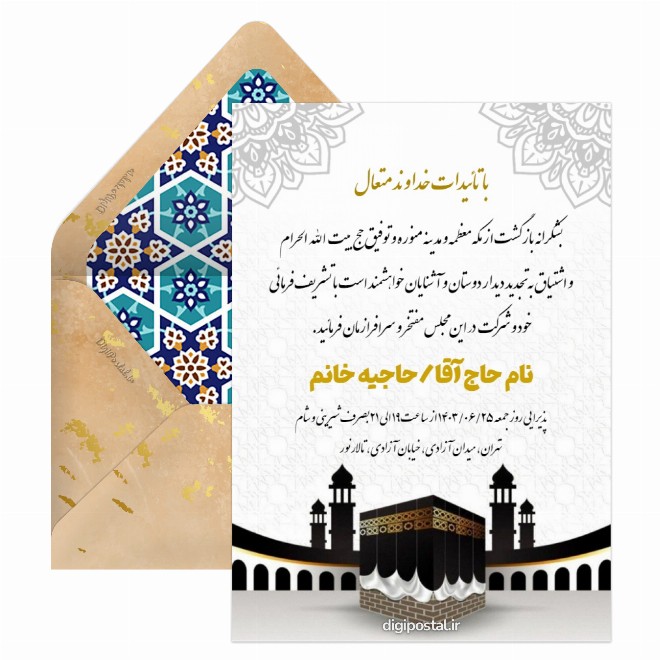 با تائیدات خداوند متعال
بشکرانه بازگشت از مکه معظمه و مدینه منوره و توفیق حج بیت الله الحرام
و اشتیاق به تجدید دیدار دوستان و آشنایان خواهشمند است با تشریف فرمائی
خود و شرکت در این مجلس مفتخر و سرافرازمان فرمائید.
نام حاج آقا/ حاجیه خانم
پذیرایی روز جمعه ۱۴۰۳/۰۶/۲۵ از ساعت ۱۹ الی ۲۱ بصرف شیرینی و شام
تهران، میدان آزادی، خیابان آزادی، تالار نور
digipostal.ir
DigiPostal.ir
DigiPostal.ir